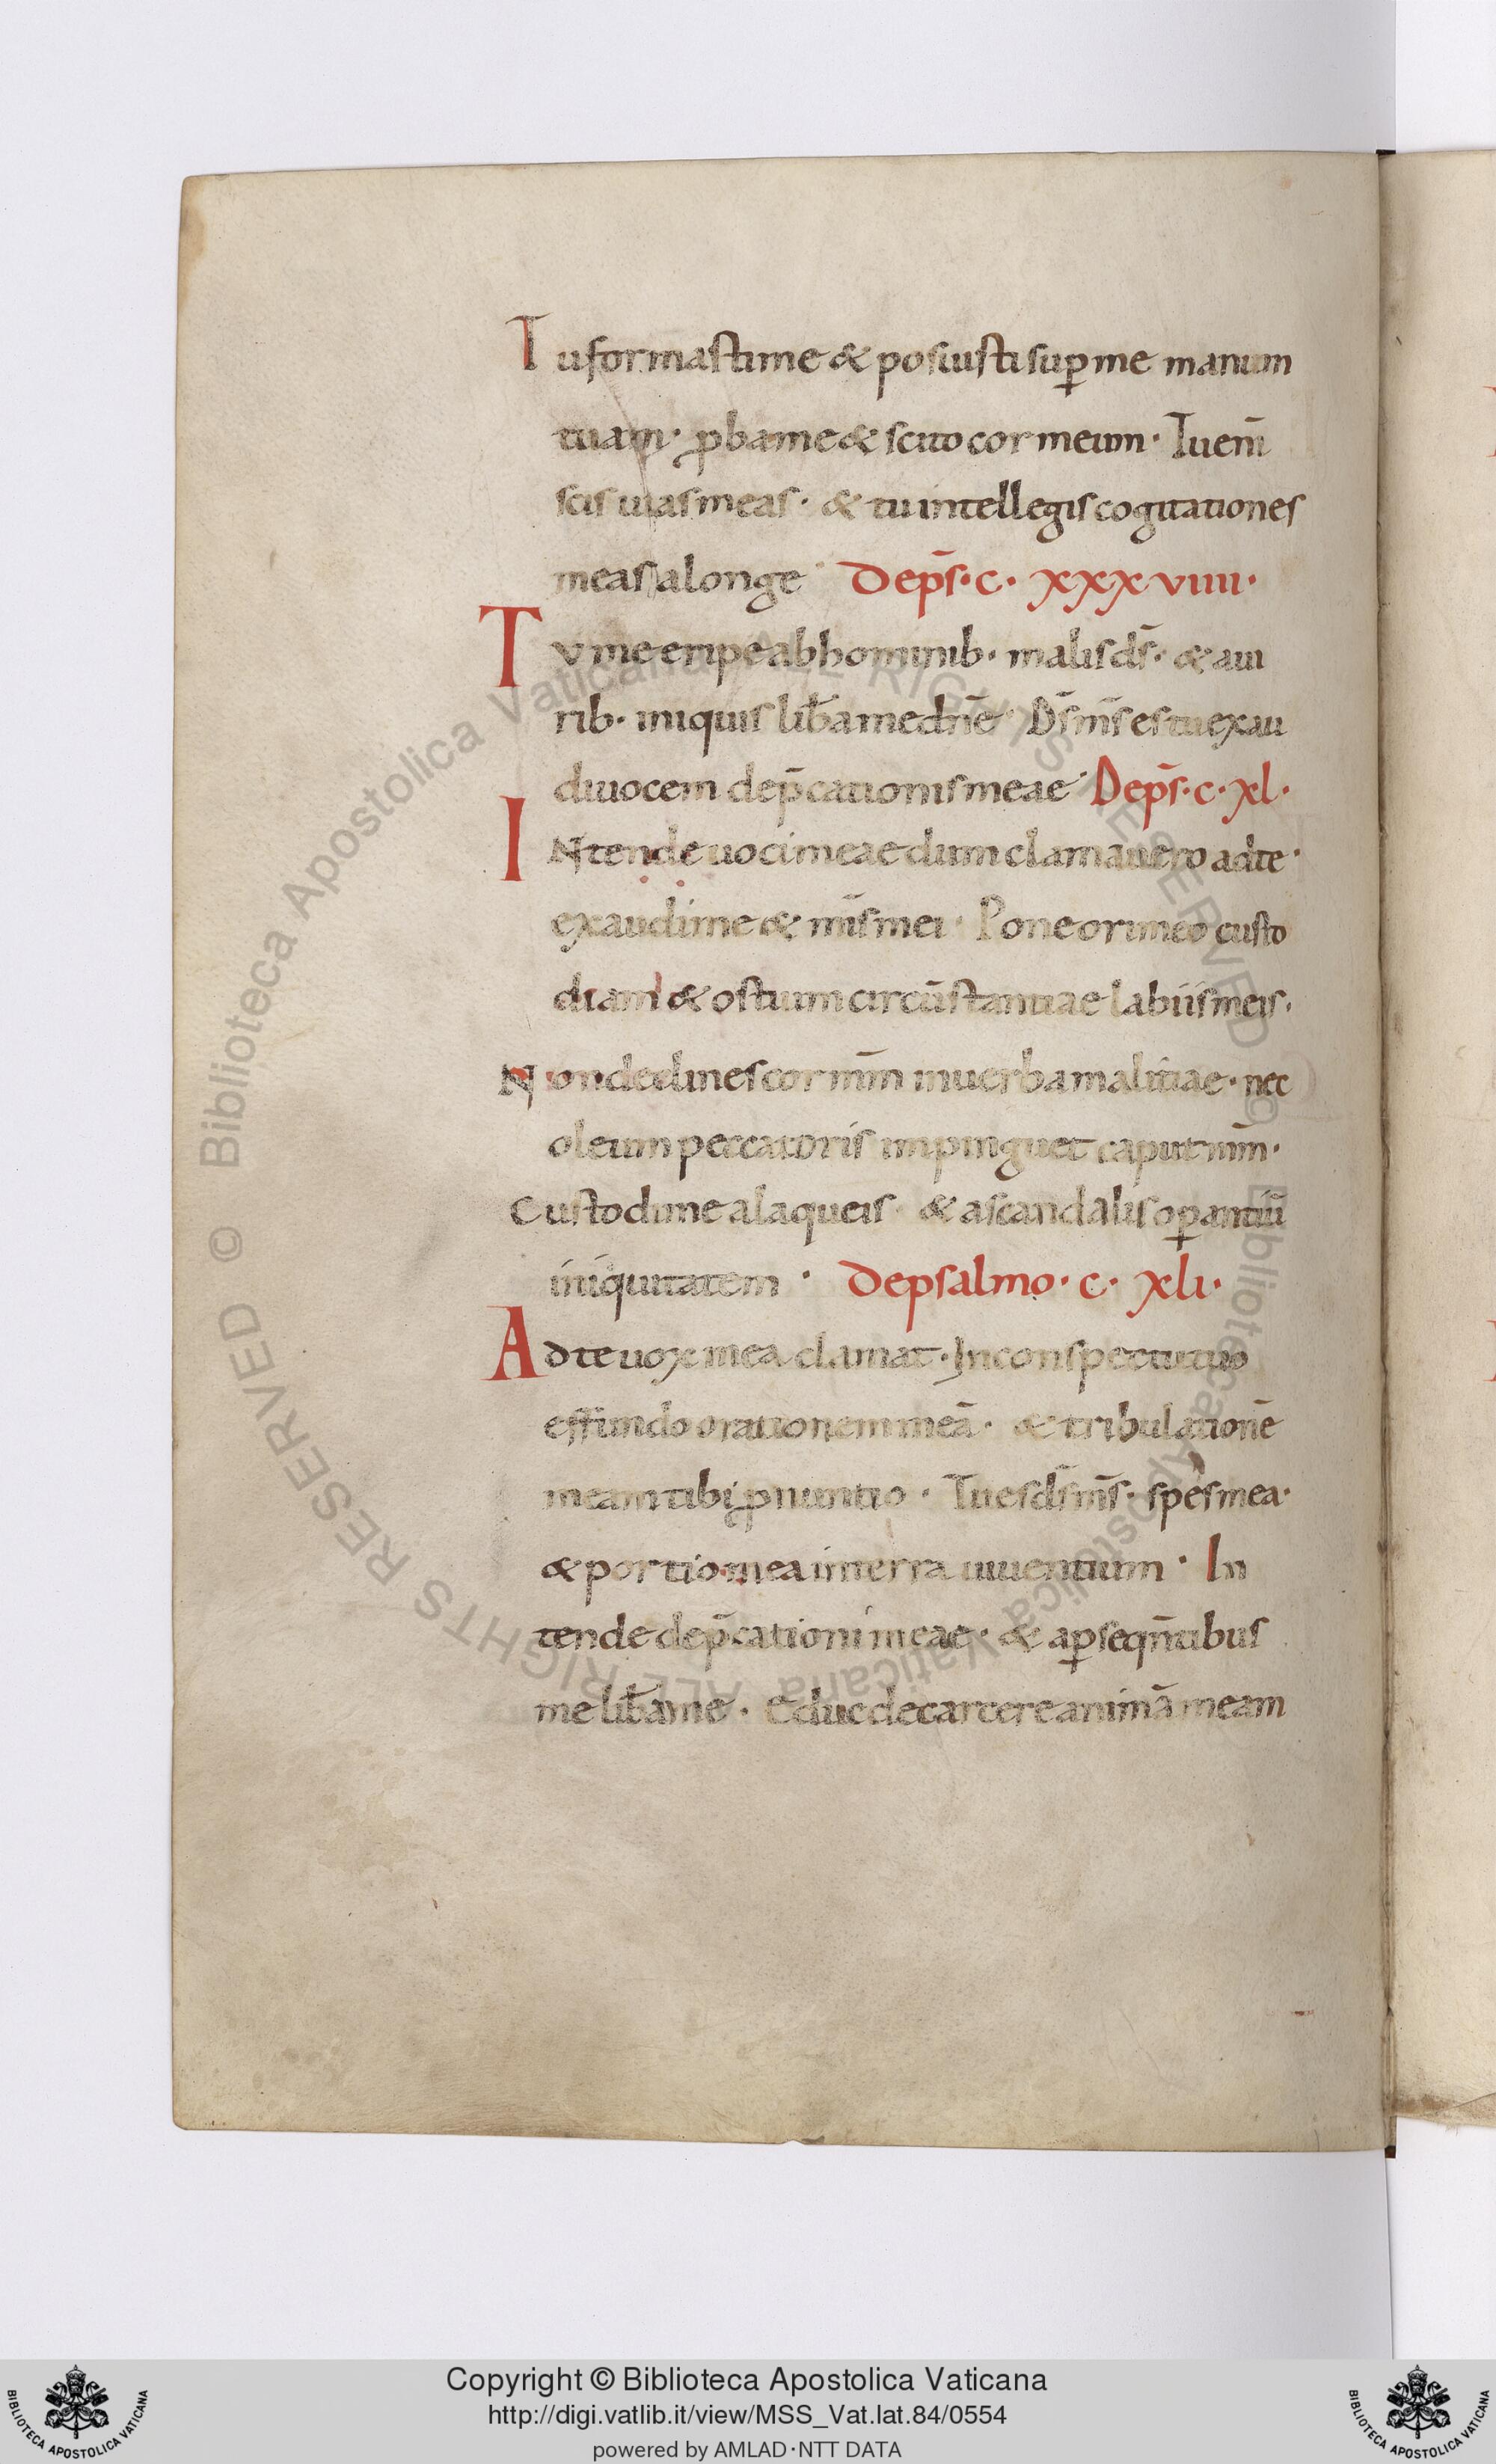 Tu formasti me & posuisti sup̱ me manum
tuam· ꝓba me & scito cor meum· Tu eni̅
scis uias meas· & tu intellegis cogitationes
meas alonge· De ps̅· c· xxxviiii·
Tv me eripe ab hominib· malis ds̅· & a ui
rib· iniquis lib̅a me dn̅e· Ds̅ ms̅ es tu exau
di uocem dep̅cationis meae· De ps̅· c· xl·
INtende uoci meae dum clamauero ad te·
exaudi me & mis̅ mei· Pone ori meo custo
diam & ostium circu̅stantiae labiis meis·
Non declines cor mm̅ in uerba malitiae· nec
oleum peccatoris impinguet caput mm̅·
Custodi me a laqueis· & a scandalis op̱antiu̅
iniquitatem· De psalmo· c· xli·
Ad te uox mea clamat· In conspectu tuo
effundo orationem mea̅· & tribulatione̅
meam tibi ꝓnuntio· Tu es ds̅ ms̅· spes mea·
& portio mea in terra uiuentium· In
tende dep̅cationi meae· & a p̱seqn̅tibus
me lib̅a me· Educ de carcere anima̅ meam
Copyright © Biblioteca Apostolica Vaticana
http://digi.vatlib.it/view/MSS_Vat.lat.84/0554
powered by AMLAD·NTT DATA
BIBLIOTECA APOSTOLICA VATICANA
BIBLIOTECA APOSTOLICA VATICANA
© Biblioteca Apostolica Vaticana ALL RIGHTS RESERVED © Biblioteca Apostolica Vaticana ALL RIGHTS RESERVED